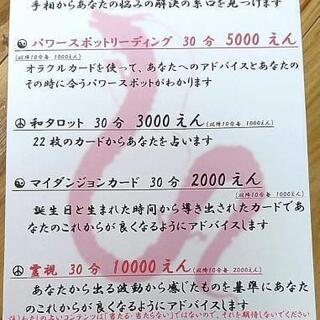 手相からあなたの悩みの解決の糸口を見つけます
パワースポットリーディング 30分 5000えん
(以降10分毎 1000えん)
オラクルカードを使って、あなたへのアドバイスとあなたの
その時に合うパワースポットがわかります
和タロット 30分 3000えん (以降10分毎 1000えん)
22枚のカードからあなたを占います
マイダンジョンカード 30分 2000えん
(以降10分毎 1000えん)
誕生日と生まれた時間から導き出されたカードであ
なたのこれからが良くなるようにアドバイスします
霊視 30分 10000えん (以降10分毎 2000えん)
あなたから出る波動から感じたものを基準にあなた
のこれからが良くなるようにアドバイスします
占いコンテンツは「当たる・当たらない」ではないので、それを期待しないでください